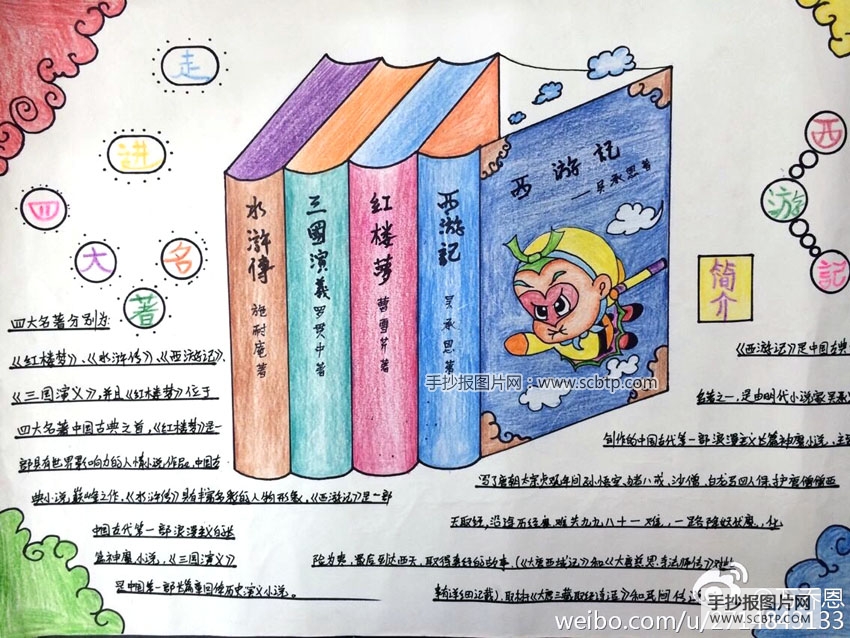 走
进
四
大
名
著
西
游
記
西游記
——吴承恩著
水浒傳 施耐庵著
三國演義 罗贯中著
紅楼梦 曹雪芹著
西游記 吴承恩著
简介
手抄报图片网：www.scbtp.com
四大名著分别为:
《红楼梦》、《水浒传》、《西游记》、
《三国演义》,并且《红楼梦》位于
四大名著中国古典之首,《红楼梦》是一
部具有世界影响力的人情小说作品,中国古
典小说巅峰之作,《水浒传》具有丰富多彩的人物形象,《西游记》是一部
中国古代第一部浪漫主义的长
篇神魔小说,《三国演义》
是中国第一部长篇章回体历史演义小说。
《西游记》是中国古典
名著之一,是由明代小说家吴承
创作的中国古代第一部浪漫主义长篇神魔小说,主
写了唐朝太宗贞观年间孙悟空、猪八戒、沙僧、白龙马四人保护唐僧西
天取经,沿途历经磨难共九九八十一难,一路降妖伏魔,化
险为夷,最后到达西天,取得真经的故事,《大唐西域记》和《大唐慈恩寺三藏法师传》
有详细记载),取材《大唐三藏取经诗话》和民间传说
手抄报图片网
WWW.SCBTP.COM
乔恩
weibo.com/u/
133